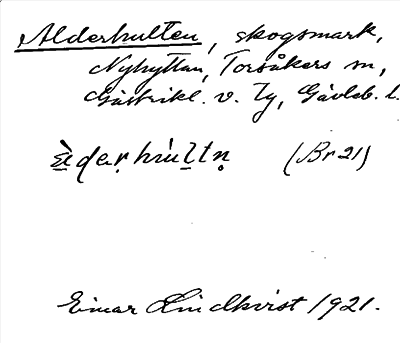 Alderhulten, skogsmark,
Nyhyttan, Torsåkers sn,
Gästrikl. v. Ty, Gävleb. l.
(Br 21)
Einar Lindkvist 1921.